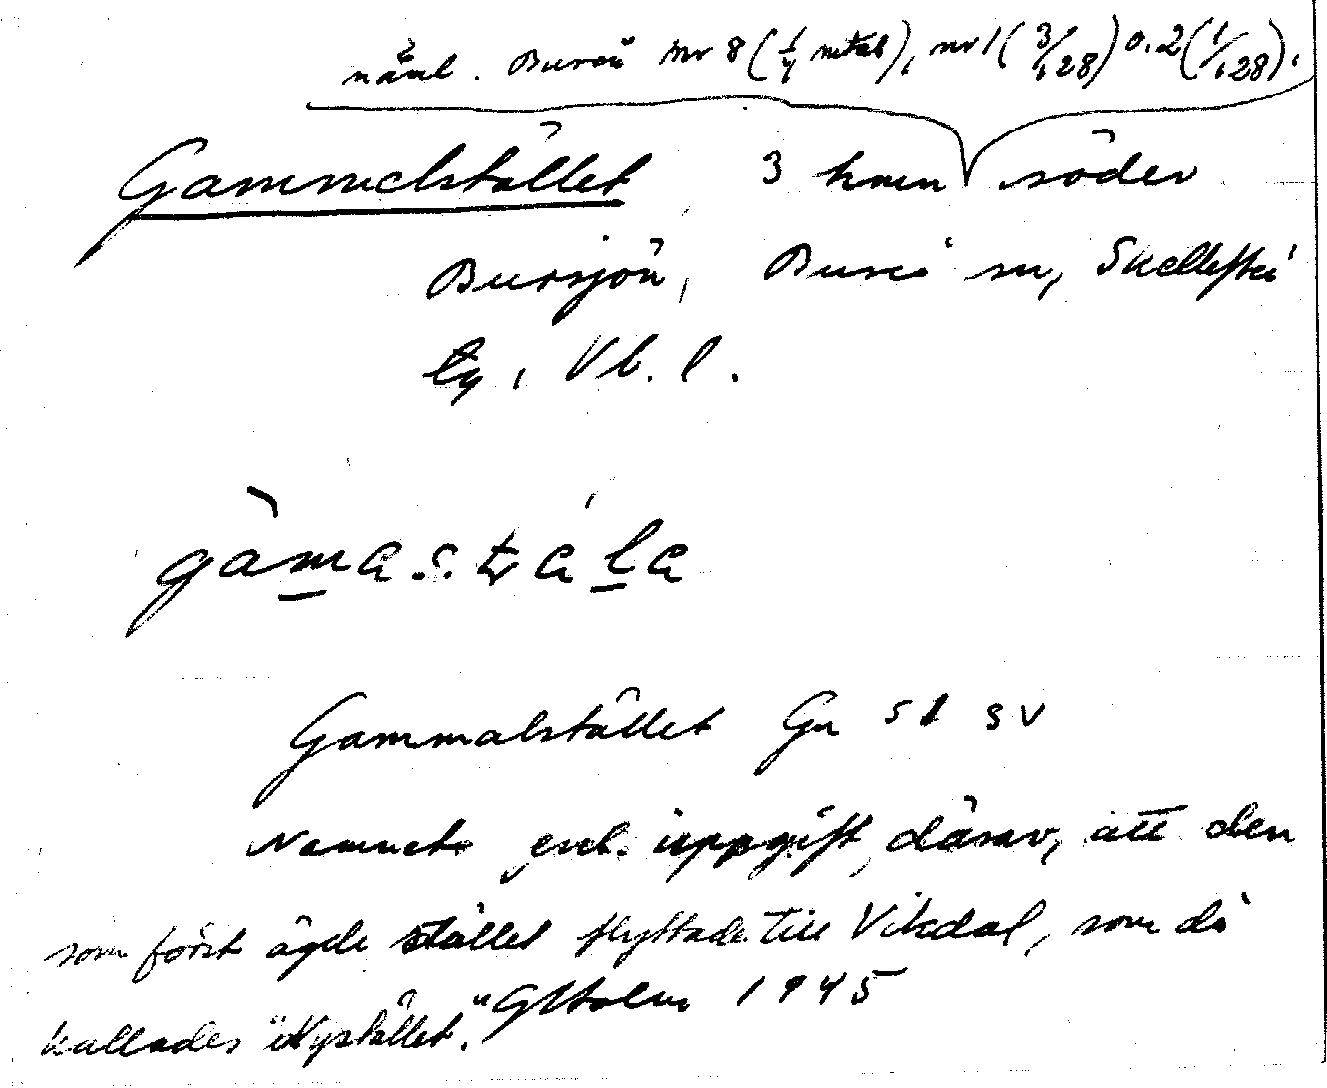 näml. Bureå nr 8 (1/4 mtal), nr 1 (3/128) o. 2 (1/128).
Gammelstället 3 hmn söder
Bursjön, Bureå sn, Skellefteå
tg, Vb. l.
Gammalstället Gn 51 SV
Namnet enl. uppgift därav, att den
som först ägde stället flyttade till Vikdal, som då
kallades "Nystället." GHolm 1945